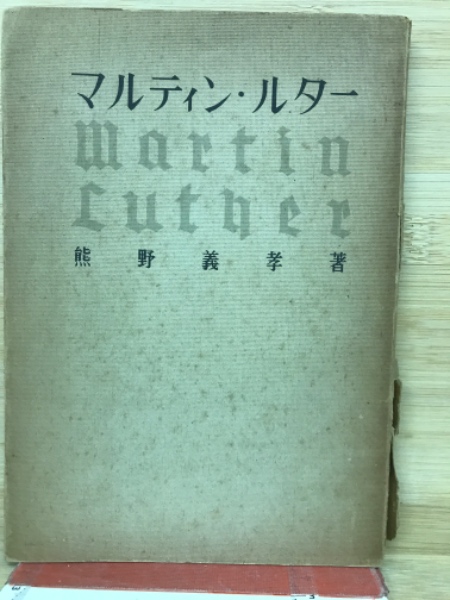 マルティン・ルター
Martin
Luther
熊野義孝著